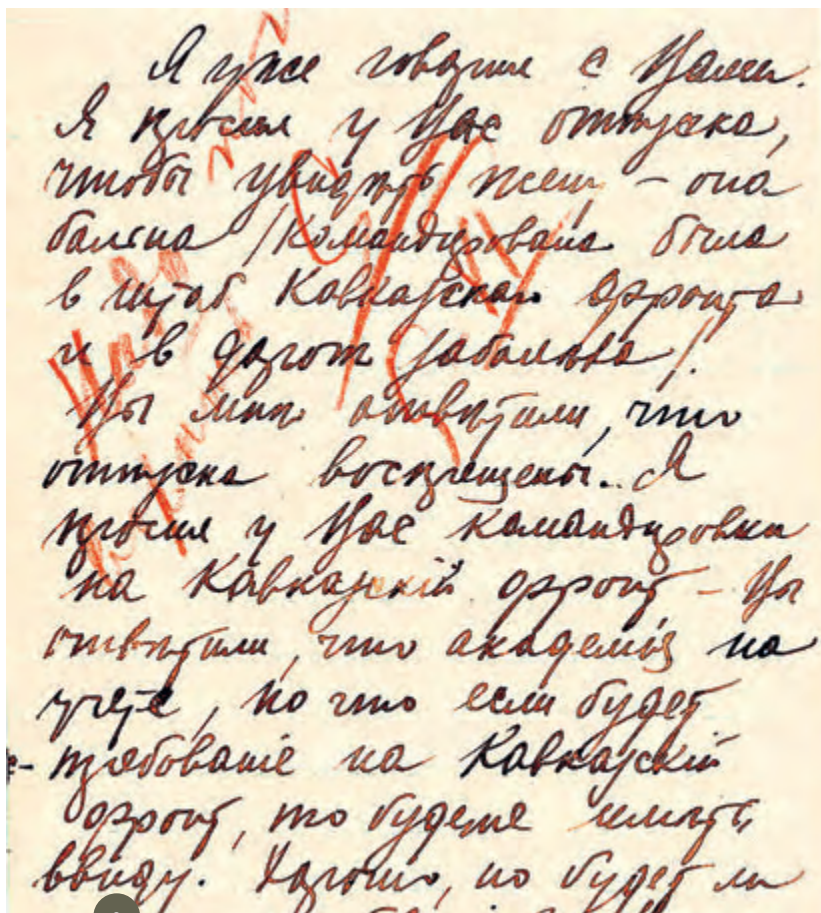 Я уже говорил с Вами.
Я просил у Вас отпуска,
чтобы увидѣть жену, – она
больна (командирована была
в штаб Кавказского фронта
и в дороге заболела).
Вы мнѣ отвѣтили, что
отпуска воспрещены. Я
просил у Вас командировки
на Кавказскій фронт – Вы
отвѣтили, что академія на
учете, но что если будет
требованіе на Кавказскій
фронт, то будете имѣть
ввиду. Хорошо, но будет ли